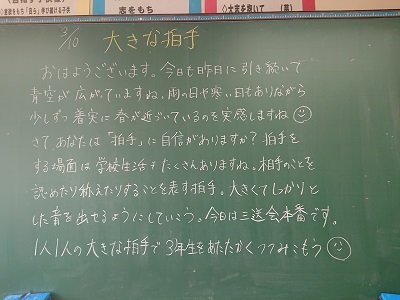 志をもち
大志を抱いて
3/10 大きな拍手
おはようございます。今日も昨日に引き続いて
青空が広がっていますね。雨の日や寒い日もありながら
少しずつ着実に春が近づいているのを実感しますね
さて、あなたは「拍手」に自信がありますか？拍手を
する場面は学校生活でたくさんありますね。相手のことを
認めたり称えたりすることを表す拍手。大きくてしっかりと
した音を出せるようにしていこう。今日は三送会本番です。
1人1人の大きな拍手で3年生をあたたかくつつみこもう